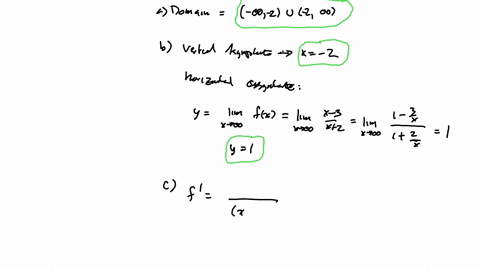 a) Domain = (-∞,-2) ∪ (-2, ∞)
b) Vertical Asymptote → x = -2
Horizontal asymptote:
y = lim x→∞ f(x) = lim x→∞ x-3/x+2 = lim x→∞ 1-3/x / 1+2/x = 1
y = 1
c) f' = /(x